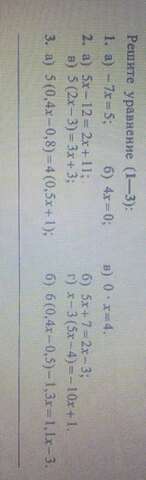 Решите уравнение (1—3):
1. а) −7x=5; б) 4x=0; в) 0 · x=4.
2. а) 5x−12=2x+11; б) 5x+7=2x−3;
в) 5(2x−3)=3x+3; г) x−3(5x−4)=−10x+1.
3. а) 5(0,4x−0,8)=4(0,5x+1); б) 6(0,4x−0,5)−1,3x=1,1x−3.